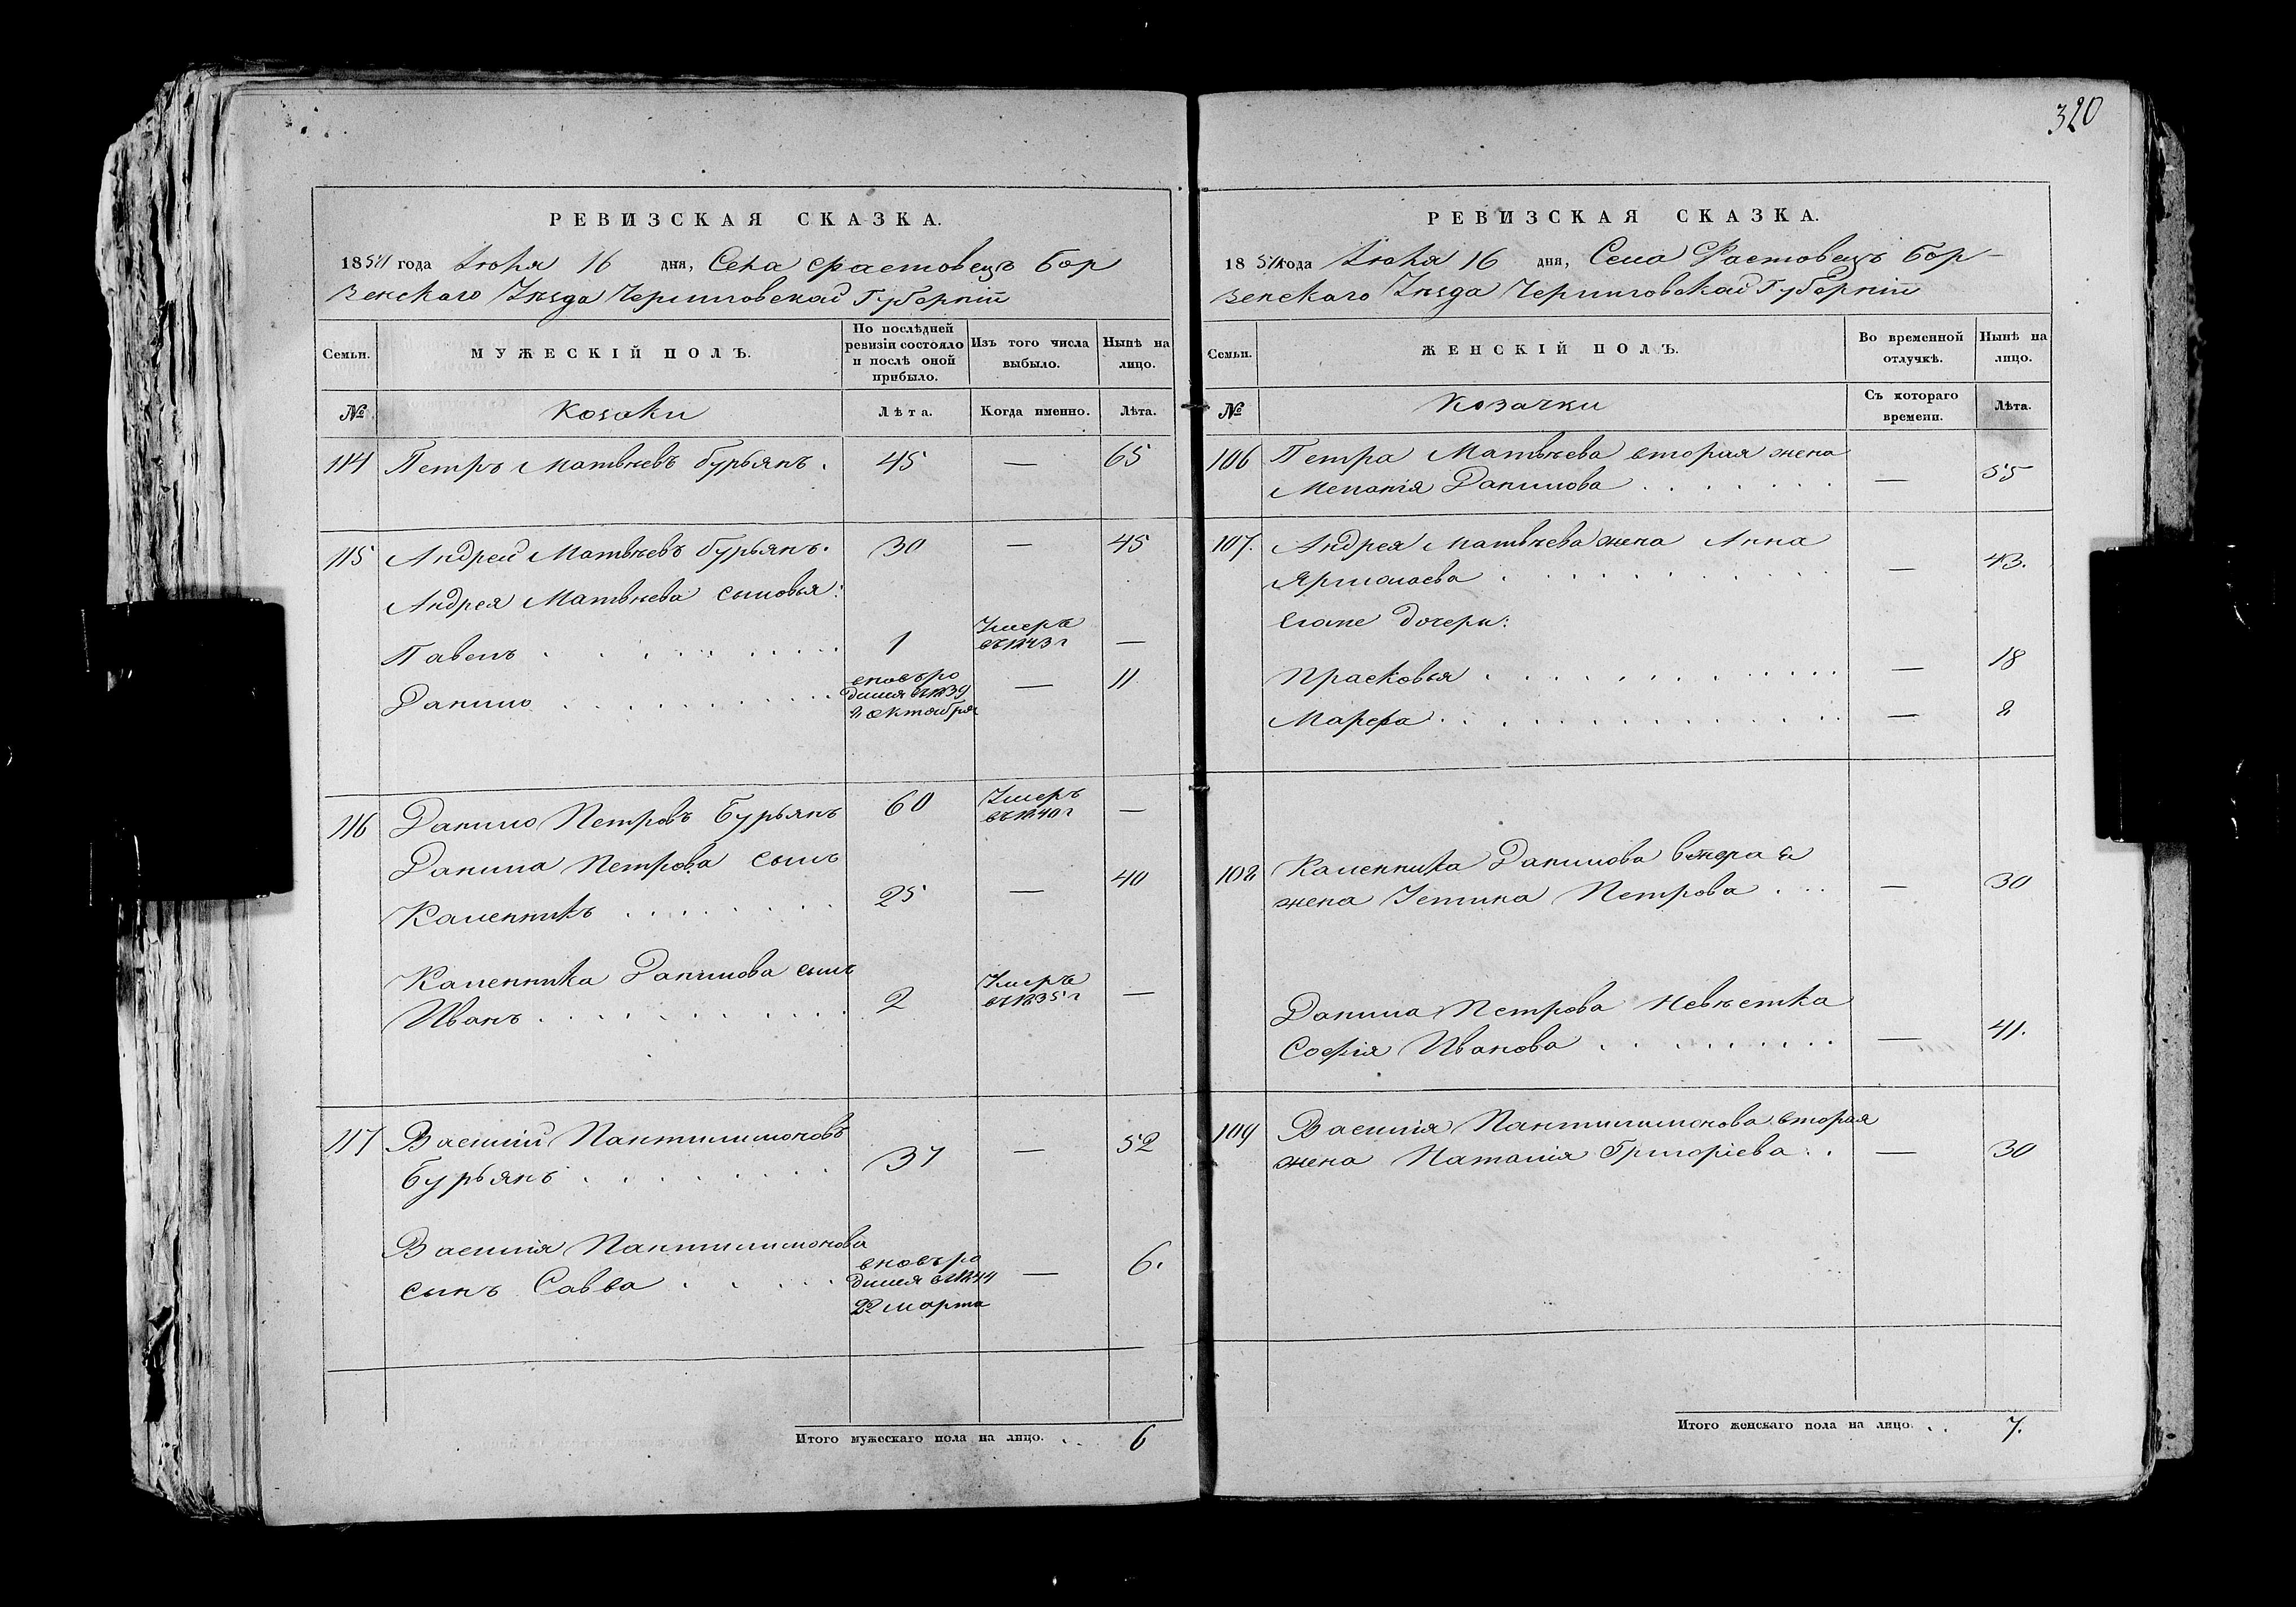 РЕВИЗСКАЯ СКАЗКА.
1851 года Июня 16 дня, Села Фастовецъ Бор
зенскаго Уѣзда Черниговской Губерніи
Семьи.
МУЖЕСКІЙ ПОЛЪ.
По послѣдней
ревизіи состояло
и послѣ оной
прибыло.
Изъ того числа
выбыло.
Нынѣ на
лицо.
№ Козаки Лѣта. Когда именно. Лѣта.
114 Петръ Матвѣевъ Бурьянъ. 45 — 65
115 Андрей Матвѣевъ Бурьянъ. 30 — 45
Андрея Матвѣева сыновья:
Павелъ 1 Умеръ въ 1843 г —
Данило вновь ро
дился въ 1839
октября — 11
116 Данило Петровъ Бурьянъ 60 Умеръ въ 1840 г —
Данила Петрова сынъ
Каленникъ 25 — 40
Каленника Данилова сынъ
Иванъ 2 Умеръ въ 1835 г —
117 Василій Пантилимоновъ
Бурьянъ 37 — 52
Василія Пантилимонова
сынъ Савва вновь ро
дился въ 1844
22 марта — 6.
Итого мужескаго пола на лицо. . . 6
320
РЕВИЗСКАЯ СКАЗКА.
1851 года Июня 16 дня, Села Фастовецъ Бор-
зенскаго Уѣзда Черниговской Губерніи
Семьи.
ЖЕНСКІЙ ПОЛЪ.
Во временной
отлучкѣ.
Нынѣ на
лицо.
№ Козачки
Съ котораго
времени.
Лѣта.
106 Петра Матвѣева вторая жена
Меланія Данилова — 55
107. Андрея Матвѣева жена Анна
Ярмолаева — 43.
Егоже дочери:
Прасковья — 18
Марфа — 8
108 Каленника Данилова вторая
жена Устина Петрова — 30
Данила Петрова невѣстка
Софія Иванова — 41.
109 Василія Пантилимонова вторая
жена Наталія Григоріева — 30
Итого женскаго пола на лицо. . . 7.